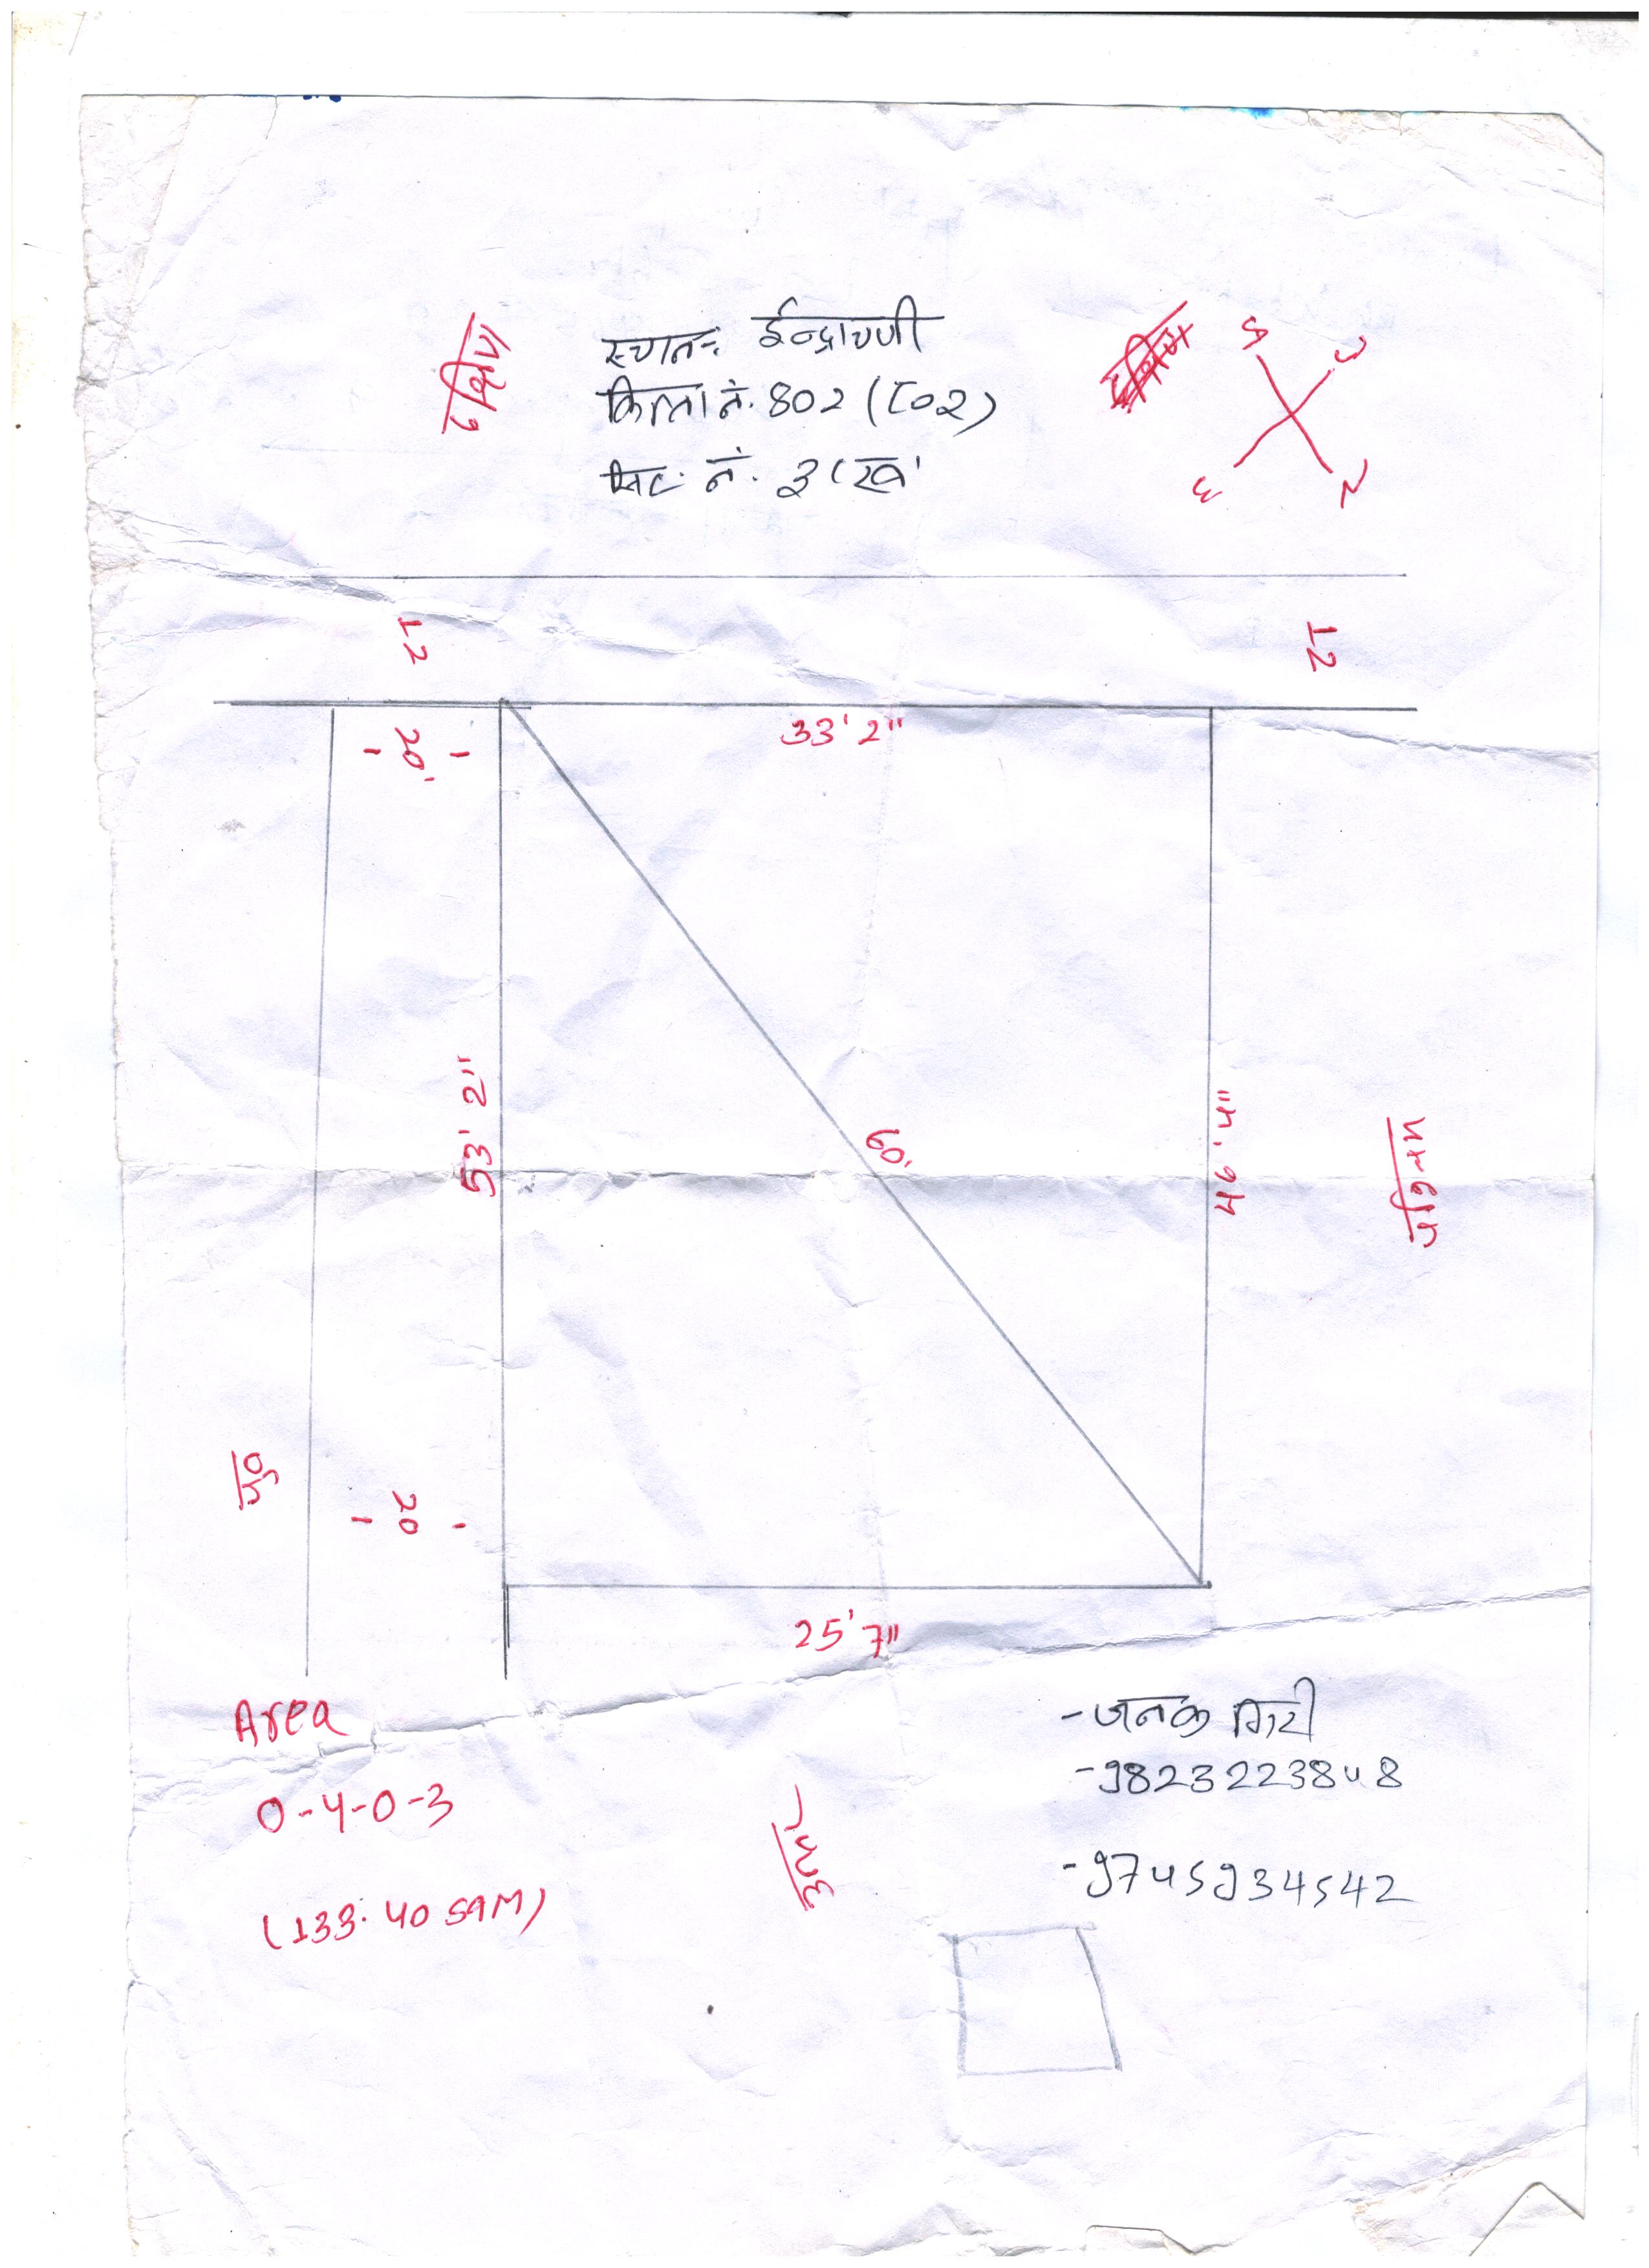 दक्षिण
स्थान: ईन्द्रावणी
कित्ता नं. 802 (८०२)
सिट नं. ३(ख)
S
W
E
N
12
12
20'
33' 2"
53' 2"
60'
46' 4"
पश्चिम
पूर्व
20
25' 7"
Area
0-4-0-3
(133.40 SQM)
उत्तर
- जनक गिरी
- 9823223848
- 9745934542